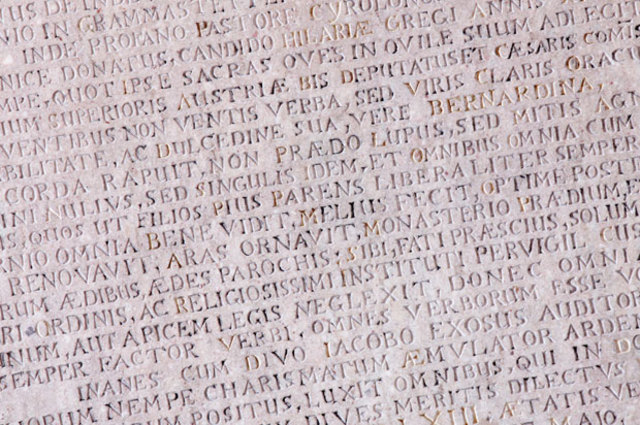 IN GRAMMASTE
INDE PROFANO PASTORE
NICE DONATUS, CANDIDO HILARIÆ GREGI ANNIS
QUOT IPSE SACRAS OVES IN OVILE SUUM ADLEGIT
IUM SUPERIORIS AUSTRIÆ BIS DEPUTATUS ET CÆSARIS COMI
VENTIBUS NON VENTIS VERBA, SED VIRIS CLARIS ORACU
ABILITATE, AC DULCEDINE SUA, VERE BERNARDINA,
CORDA RAPUIT, NON PRÆDO LUPUS, SED MITIS AG
INI NULIUS, SED SINGULIS IDEM, ET OMNIBUS OMNIA CUM
S QUOS UT FILIOS PIUS PARENS LIBERALITER SEMPER
NIO OMNIA BENE VIDIT, MELIUS FECIT, OPTIME POSTE
RENOVAVIT, ARAS ORNAVIT, MONASTERIO PRÆDIUM, E
RUM ÆDIBUS ÆDES PAROCHIS, SIBI, FATI PRÆSCIUS, SOLUM
RI ORDINIS, AC RELIGIOSISSIMI INSTITUTI PERVIGIL CUS
NIUM, AUT APICEM LEGIS NEGLEXIT DONEC OMNIA
SEMPER FACTOR VERBI, OMNES VERBORUM ESSE V
INANES CUM DIVO IACOBO EXOSUS AUDITOR
IORUM NEMPE CHARISMATUM ÆMULATOR ARDEN
RUM POSITUS, LUXIT OMNIBUS, QUI IN D
DIVES MERITIS DILECTUS
LXIII ÆTATIS VE
MAIO